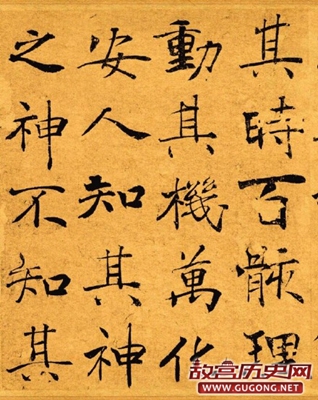 其時百骸理
動其機萬化
安人知其神
之神不知其
故宫历史网
WWW.GUGONG.NET